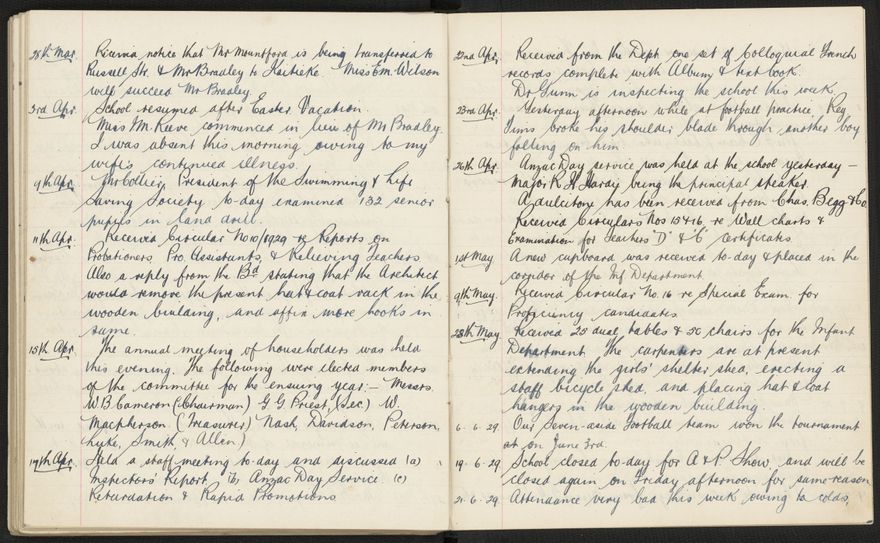 28th Mar. Receive notice that Mr Mountford is being transferred to
Russell St. & Mr Bradley to Kaitieke. Miss E.M. Wilson
will succeed Mr Bradley.
3rd Apr. School resumed after Easter Vacation.
Miss M. Reeve commenced in lieu of Mr Bradley.
I was absent this morning owing to my
wife's continued illness.
9th Apr. Mr Collier, President of the Swimming & Life
Saving Society to-day examined 132 senior
pupils in land drill.
11th Apr. Received Circular No 10/1929 re Reports on
Probationers, Pro. Assistants, & Relieving Teachers.
Also a reply from the Bd stating that the Architect
would remove the present hat & coat rack in the
wooden building, and affix more hooks in
same.
15th Apr. The annual meeting of householders was held
this evening. The following were elected members
of the committee for the ensuing year:- Messrs.
W.B. Cameron (Chairman) G.G. Priest, (Sec.) W.
Macpherson. (Treasurer) Nash, Davidson, Peterson,
Luke, Smith & Allen.)
19th Apr. Held a staff meeting to-day and discussed (a)
Inspectors' Report (b) Anzac Day Service (c)
Retardation & Rapid Promotions
22nd Apr. Received from the Dept. one set of Colloquial French
records complete with Album & text book.
Dr Gunn is inspecting the school this week.
23rd Apr. Yesterday afternoon while at football practice, Reg
Sims broke his shoulder blade through another boy
falling on him
26th Apr. Anzac Day service was held at the school yesterday –
Major R. H. Hardy being the principal speaker.
A dulcitone has been received from Chas. Begg & Co.
Received Circulars Nos 15 & 16 re Wall charts &
Examination for Teachers "D" & "C" certificates
1st May A new cupboard was received to-day & placed in the
corridor of the Inf Department
9th May. Received Circular No. 16 re Special Exam. for
Proficiency candidates
28th May Received 25 dual tables & 50 chairs for the Infant
Department. The carpenters are at present
extending the girls' shelter shed, erecting a
staff bicycle shed, and placing hat & coat
hangers in the wooden building.
6.6.29. Our seven-aside football team won the tournament
at on June 3rd.
19.6.29 School closed to-day for A & P. Show and will be
closed again on Friday afternoon for same reason
21.6.29. Attendance very bad this week owing to colds,